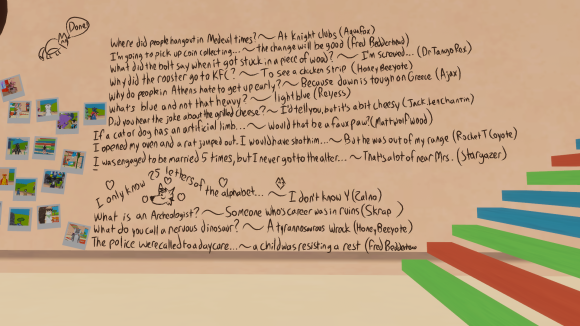 Done!
Where did people hangout in Medeval times? ~ At Knight clubs (Aquafox)
I'm going to pick up coin collecting... ~ the change will be good (Fred Bedderhead)
What did the bolt say when it got stuck in a piece of wood? ~ I'm screwed... (Dr Tango Fox)
Why did the rooster go to KFC? ~ To see a chicken strip (Honey Beeyote)
Why do people in Athens hate to get up early? ~ Because dawn is tough on Greece (Ajax)
What's blue and not that heavy? ~ light blue (Reyess)
Did you hear the joke about the grilled cheese? ~ I'd tell you, but it's a bit cheesy (Jack.Lenchantin)
If a cat or dog has an artificial limb... ~ Would that be a faux paw? (Mattwolf Wood)
I opened my oven and a rat jumped out. I would have shot him... ~ But the was out of my range (Rocket T Coyote)
I was engaged to be married 5 times, but I never got to the alter... ~ That's a lot of near Mrs. (Stargazer)
I only know 25 letters of the alphabet... ~ I don't know Y (Calno)
What is an Archeologist? ~ Someone who's career was in ruins (Skrap)
What do you call a nervous dinosaur? ~ A tyrannosaurus wrack (Honey Beeyote)
The police were called to a daycare... ~ a child was resisting a rest (Fred Bedderhead